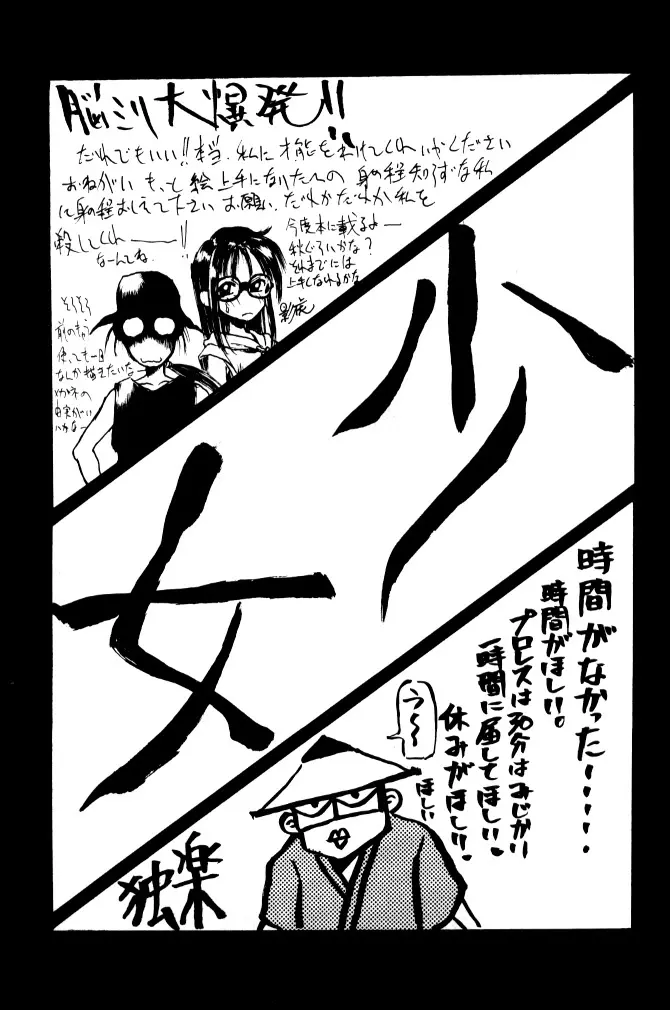 脳ミソ大爆発!!
だれでもいい!!本当、私に才能をわけてくれいやください
おねがい もっと絵上手になりたいの 身の程知らずな私
に身の程おしえて下さい お願い、だれかだれか私を
殺してくれ――!!
なーんてね
今度本に載るよー
秋ぐらいかな?
それまでには
上手くなれるかな
影虎
そろそろ
使っても一日
なんか描きたいな。
少女
時間がなかった・・・・・
時間がほしい。
プロレスは30分はみじかい
一時間に届してほしい。
休みがほしい。
う〜〜
ほしい
独楽